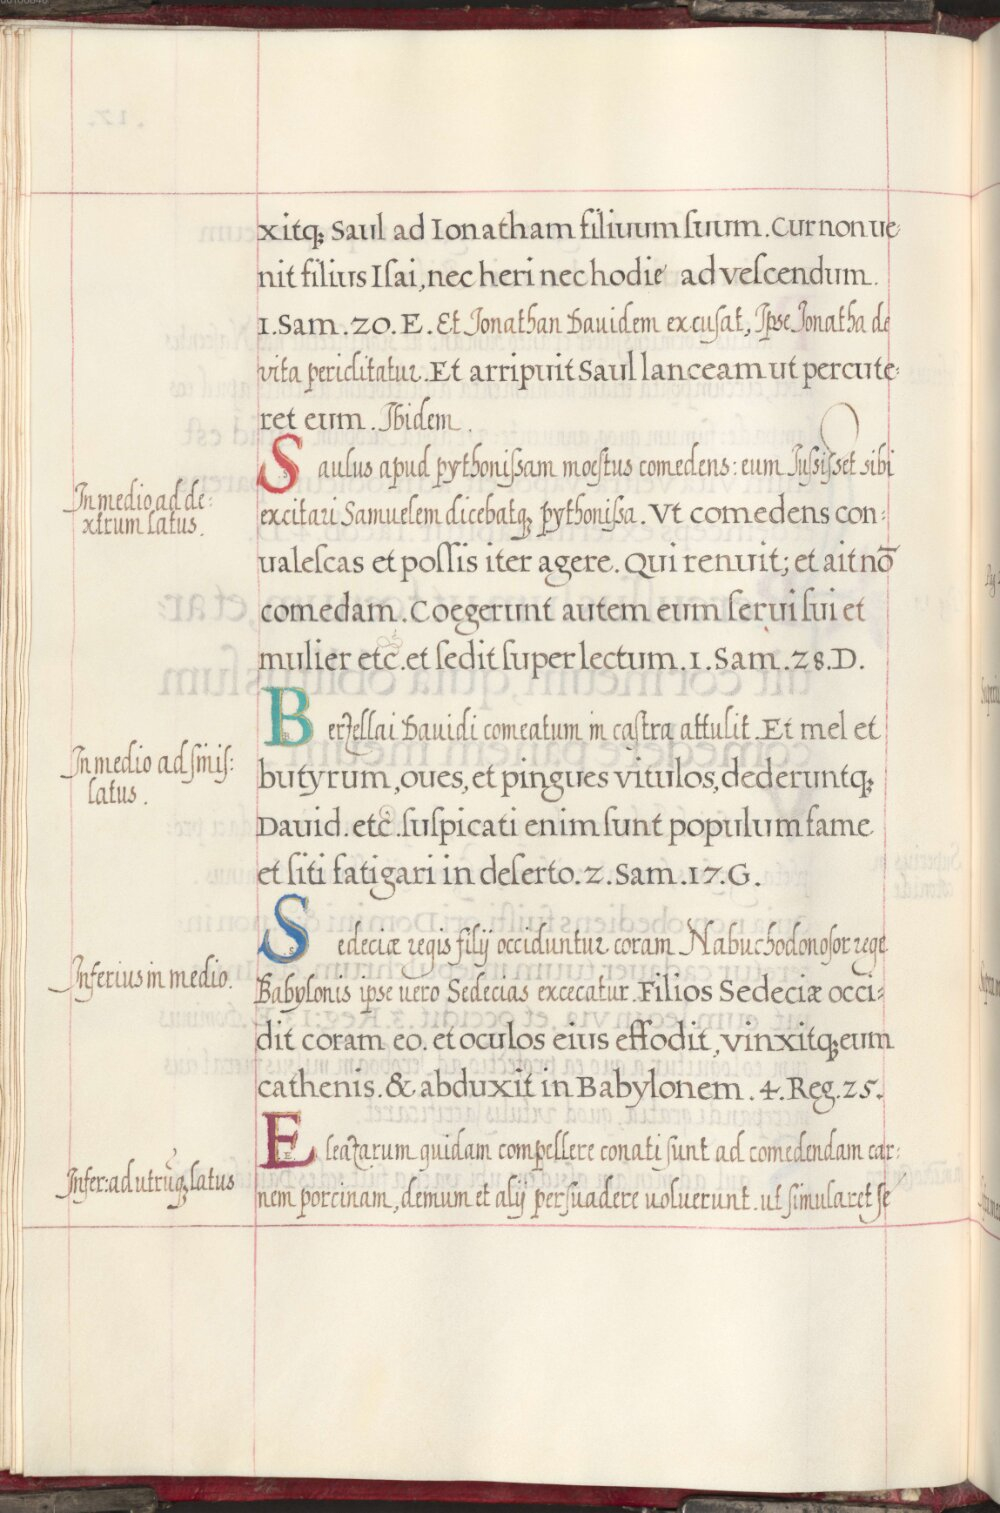 xitq; Saul ad Ionatham filiuum suum. Cur non ue-
nit filius Isai, nec heri nec hodie ad vescendum.
1. Sam. 20. E. Et Jonathan Dauidem excusat, Ipse Jonatha de
vita periclitatur. Et arripuit Saul lanceam ut percute-
ret eum. Ibidem.
Saulus apud pythonissam moestus comedens: eum Jussisset sibi
In medio ad de:
xtrum latus.
excitari Samuelem dicebatq; pythonissa. Vt comedens con-
ualescas et possis iter agere. Qui renuit; et ait nō
comedam. Coegerunt autem eum serui sui et
mulier etc. et sedit super lectum. 1. Sam. 28. D.
Berzellai Dauidi comeatum in castra attulit. Et mel et
In medio ad sinis:
latus.
butyrum, oues, et pingues vitulos, dederuntq;
David. etc. suspicati enim sunt populum fame
et siti fatigari in deserto. 2. Sam. 17. G.
Sedeciæ regis filij occiduntur coram Nabuchodonosor rege
Inferius in medio.
Babylonis ipse uero Sedecias excecatur. Filios Sedeciæ occi-
dit coram eo. et oculos eius effodit, vinxitq; eum
cathenis. & abduxit in Babylonem. 4. Reg. 25.
Eleazarum quidam compellere conati sunt ad comedendam car:
Infer: ad utrūq; latus
nem porcinam, demum et alij persuadere uoluerunt. ut simularet se